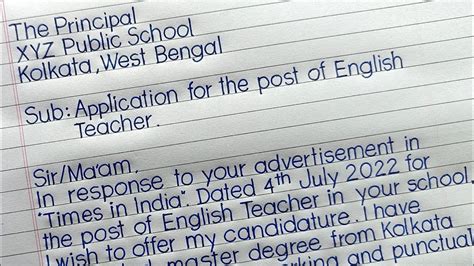 The Principal
XYZ Public School
Kolkata, West Bengal
Sub: Application for the post of English
Teacher.
Sir/Ma'am,
In response to your advertisement in
"Times in India". Dated 4th July 2022 for
the post of English Teacher in your school.
I wish to offer my candidature. I have
master degree from Kolkata
and punctual